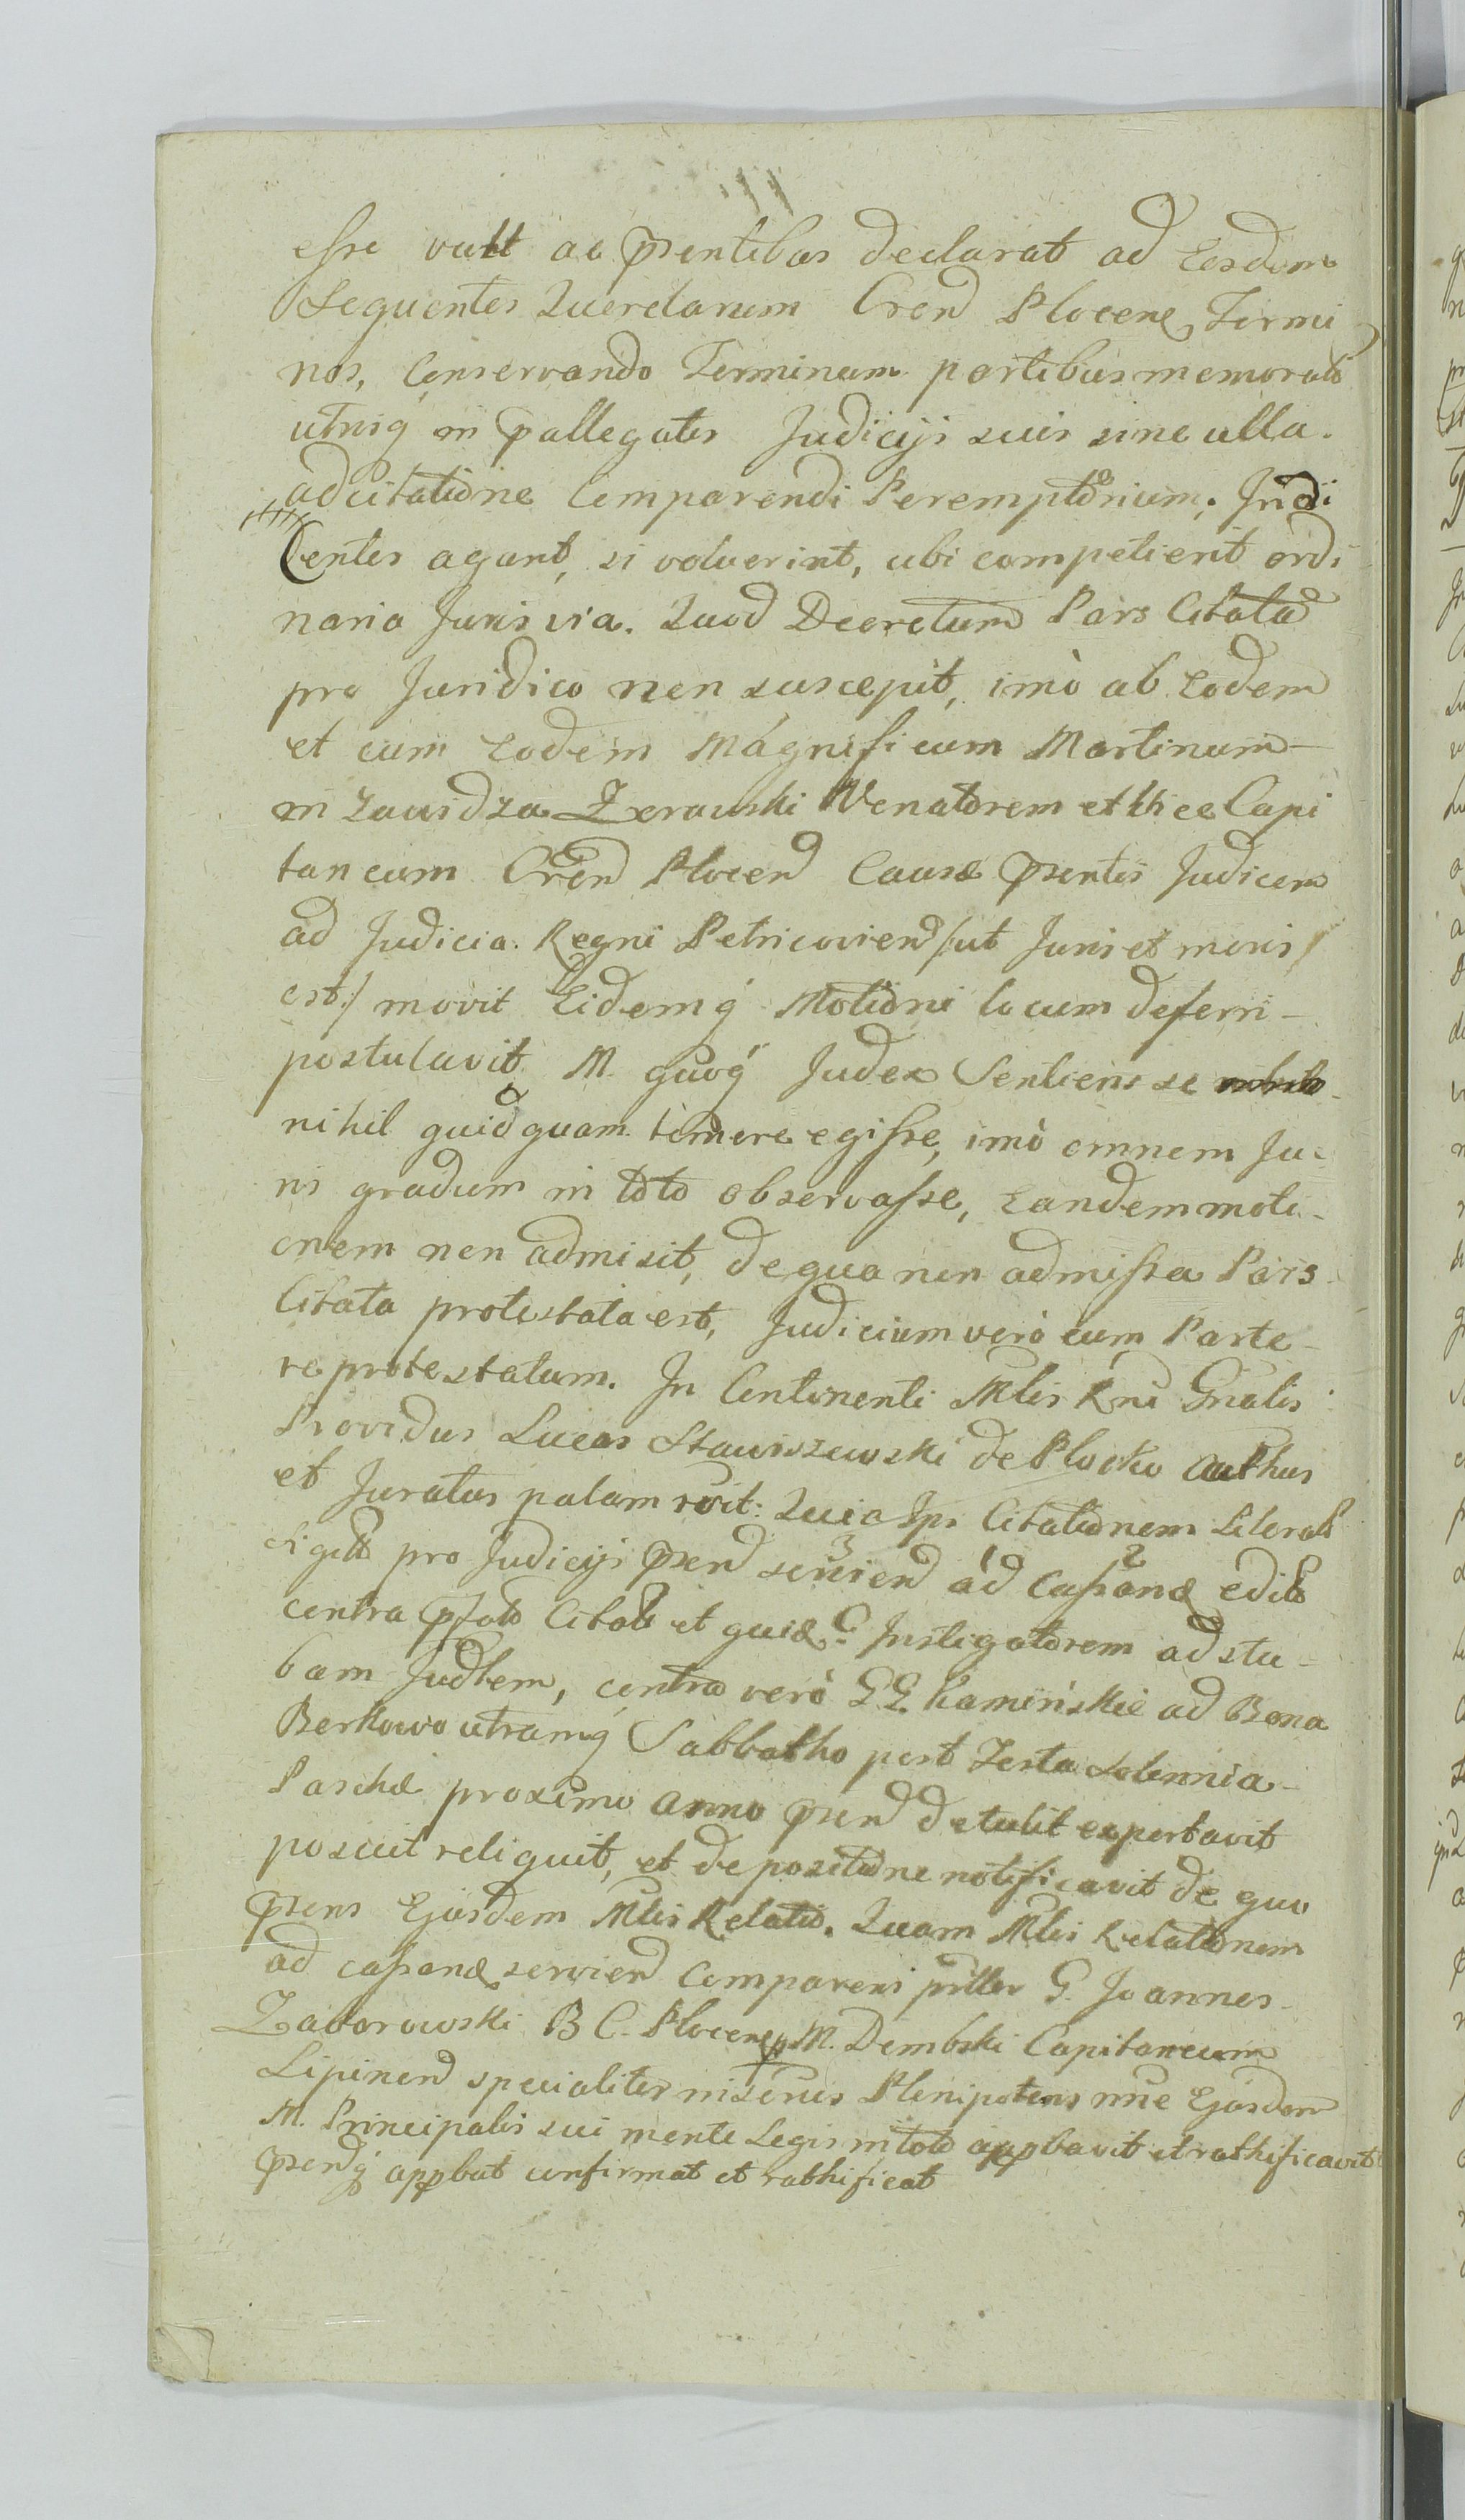 esse vult ac præsentibus declarat ad Eosdem
Sequentes Querelarum Cren̄d Plocen̄ Termi
nos, Conservando Terminum partibus memorat̄
utrisq̄ in p̄allegatis Judicijs suis sine ulla
adcitatione Comparendi Peremptorium; Indi
Centes agant, si voluerint, ubi competierit ordi
naria Juris via. Quod Decretum Pars Citata
pro Juridico non suscepit, imò ab Eodem
et cum Eodem Magnificum Martinum
in Zawidza Zerawski Venatorem et Vice Capi
taneum Cren̄d Plocen̄d Causæ p̄sentis Judicem
ad Judicia Regni Petricovien̄d /ut Juris et moris
est:/ movit Eidemq̄ Motioni locum deferri
postulavit M. quoq̄ Judex Sentiens se
nihil quidquam temere egisse, imò omnem Ju
ris gradum in toto observasse, Eandem moti
onem non admisit, de qua non admissa Pars
Citata protestata est, Judicium verò cum Parte
reprotestatum. In Continenti Mlis Rni Gn̄alis
Providus Lucas Stawiszewski de Plocko authus
et Juratus palam r̄vit: Quia Ips̄ Citationem Literat̄
Sigill̄ pro Judicijs p̄sen̄d servien̄d ad Cassand̄ edit̄
contra p̄fat̄ Citat̄ et quid̄ Instigatorem ad stu
bam Jud̄lem, contra verò GG. Kaminskie ad Bona
Berkowo utramq̄ Sabbatho post Festa Solennia
Paschæ proximo anno p̄sen̄d detulit exportavit
posuit reliquit, et de positione notificavit de quo
p̄sens Ejusdem Mlis Relatio. Quam Mlis Relationem
ad cassand̄ servien̄d Comparens p̄nlter G. Joannes
Zaborowski B C. Plocen̄ p M. Dembski Capitaneum
Lipinen̄d specialiter miserus Plenipotens n̄ne Ejusdem
M. Principalis sui mente Legis in toto app̄bavit et rathificavit
p̄sen̄dq̄ app̄bat confirmat et rathificat